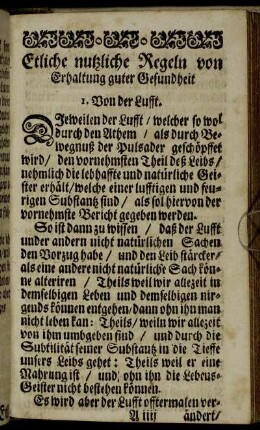 Etliche nutzliche Regeln von
Erhaltung guter Gesundheit
1. Von der Lufft.
Dieweilen der Lufft / welcher so wol
durch den Athem / als durch Be-
wegnuß der Pulsader geschöpffet
wird / den vornehmsten Theil deß Leibs /
nehmlich die lebhaffte und natürliche Gei-
ster erhält / welche einer lufftigen und feu-
rigen Substantz sind / als sol hiervon der
vornehmste Bericht gegeben werden.
So ist dann zu wissen / daß der Lufft
under andern nicht natürlichen Sachen
den Vorzug habe / und den Leib stärcker /
als eine andere nicht natürliche Sach kön-
ne alteriren / Theils weil wir allezeit in
demselbigen Leben und demselbigen nir-
gends können entgehen / dann ohn ihn man
nicht leben kan: Theils / weiln wir allezeit
von ihm umbgeben sind / und durch die
Subtilität seiner Substantz in die Tieffe
unsers Leibs gehet: Theils weil er eine
Nahrung ist / und, ohn ihn die Lebens-
Geister nicht bestehen können.
Es wird aber der Lufft offtermalen ver-
A iiij ändert /